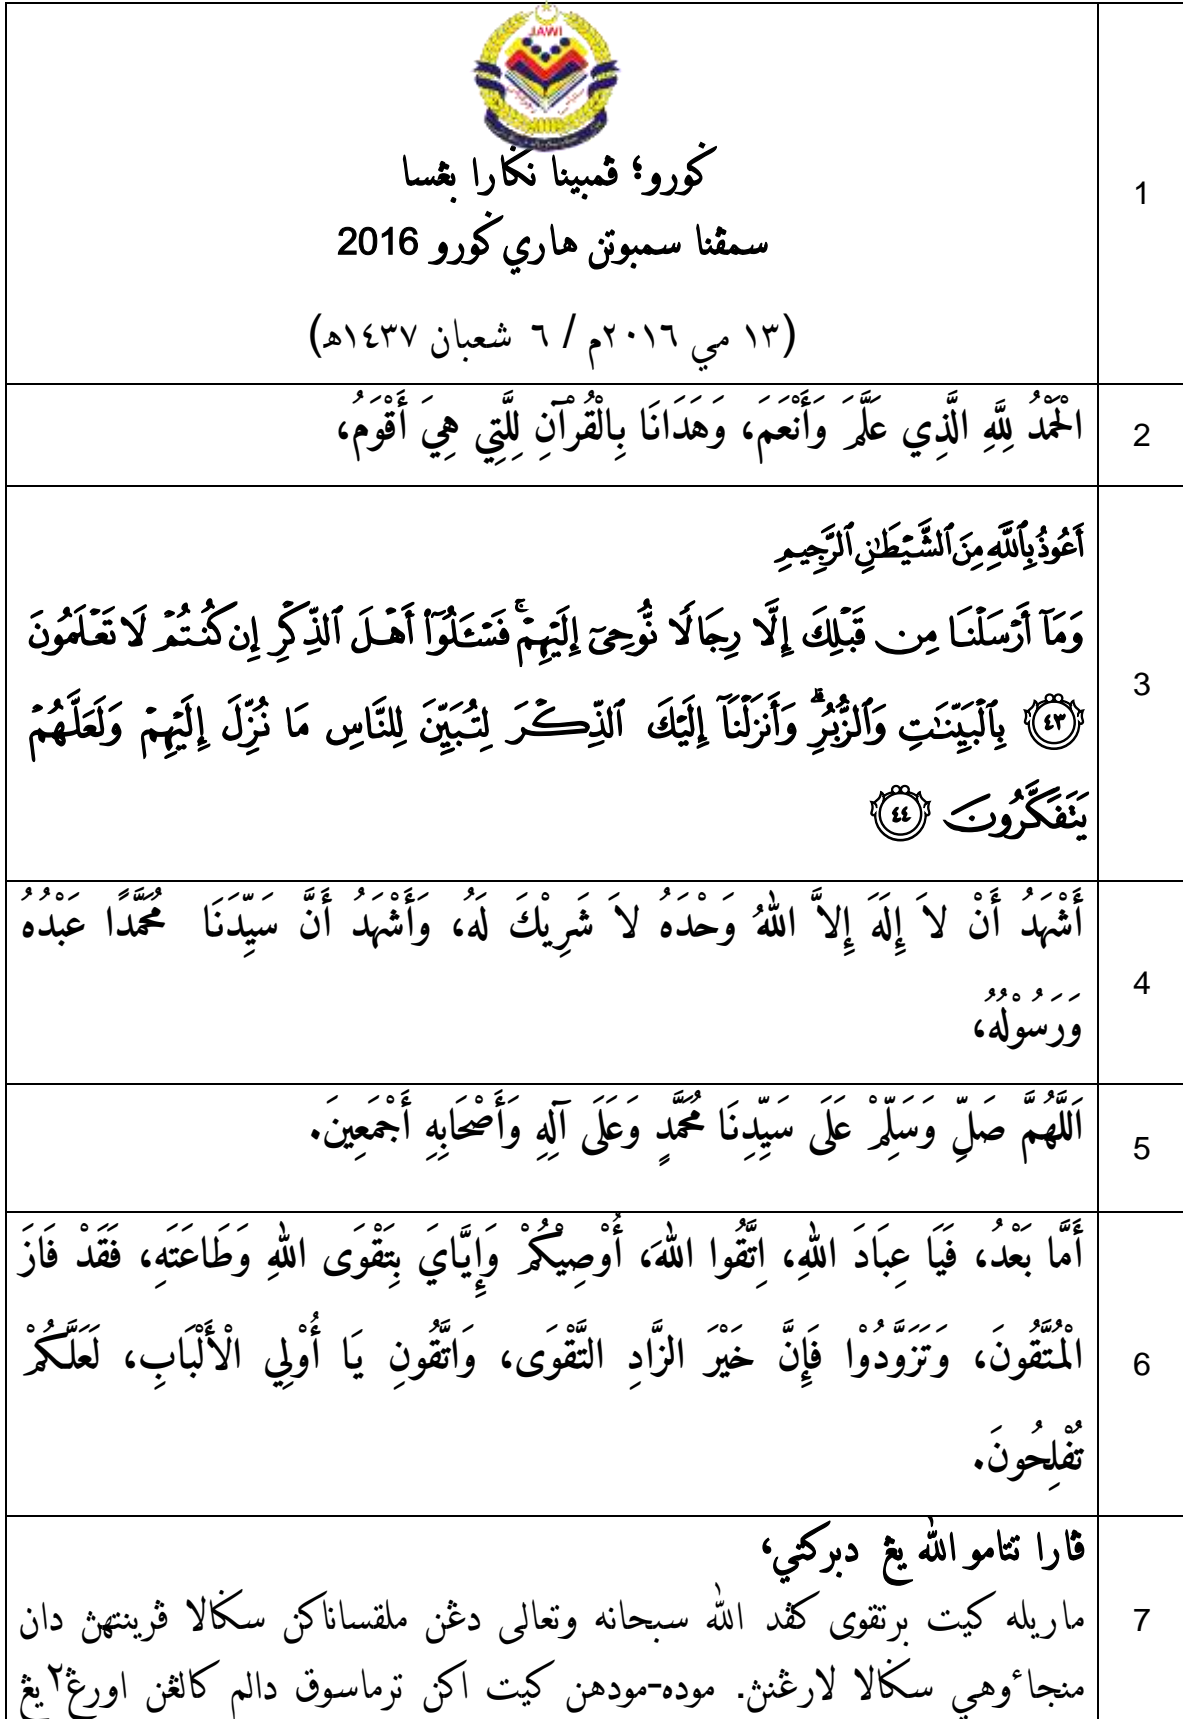 JAWI
ݢورو؛ ڤمبينا نݢارا بڠسا
سمڤنا سمبوتن هاري ݢورو 2016
(١٣ مي ٢٠١٦م / ٦ شعبان ١٤٣٧ه)
1
الْحَمْدُ لِلَّهِ الَّذِي عَلَّمَ وَأَنْعَمَ، وَهَدَانَا بِالْقُرْآنِ لِلَّتِي هِيَ أَقْوَمُ،
2
أَعُوذُ بِٱللَّهِ مِنَ ٱلشَّيْطَٰنِ ٱلرَّجِيمِ
وَمَآ أَرْسَلْنَا مِن قَبْلِكَ إِلَّا رِجَالًا نُّوحِىٓ إِلَيْهِمْ ۚ فَسْـَٔلُوٓا۟ أَهْلَ ٱلذِّكْرِ إِن كُنتُمْ لَا تَعْلَمُونَ
﴿٤٣﴾ بِٱلْبَيِّنَٰتِ وَٱلزُّبُرِ ۗ وَأَنزَلْنَآ إِلَيْكَ ٱلذِّكْرَ لِتُبَيِّنَ لِلنَّاسِ مَا نُزِّلَ إِلَيْهِمْ وَلَعَلَّهُمْ
يَتَفَكَّرُونَ ﴿٤٤﴾
3
أَشْهَدُ أَنْ لاَ إِلَهَ إِلاَّ اللهُ وَحْدَهُ لاَ شَرِيْكَ لَهُ، وَأَشْهَدُ أَنَّ سَيِّدَنَا مُحَمَّدًا عَبْدُهُ
وَرَسُوْلُهُ،
4
اَللَّهُمَّ صَلِّ وَسَلِّمْ عَلَى سَيِّدِنَا مُحَمَّدٍ وَعَلَى آلِهِ وَأَصْحَابِهِ أَجْمَعِينَ.
5
أَمَّا بَعْدُ، فَيَا عِبَادَ اللهِ، اِتَّقُوا اللهَ، أُوْصِيْكُمْ وَإِيَّايَ بِتَقْوَى اللهِ وَطَاعَتِهِ، فَقَدْ فَازَ
الْمُتَّقُونَ، وَتَزَوَّدُوْا فَإِنَّ خَيْرَ الزَّادِ التَّقْوَى، وَاتَّقُونِ يَا أُوْلِي الْأَلْبَابِ، لَعَلَّكُمْ
تُفْلِحُونَ.
6
ڤارا تتامو الله يڠ دبركتي،
ماريله کيت برتقوى کڤد الله سبحانه وتعالى دڠن ملقساناکن سݢالا ڤرينتهڽ دان
منجاءوهي سݢالا لارڠنڽ. موده-مودهن کيت اکن ترماسوق دالم کالڠن اورڠ٢ يڠ
7